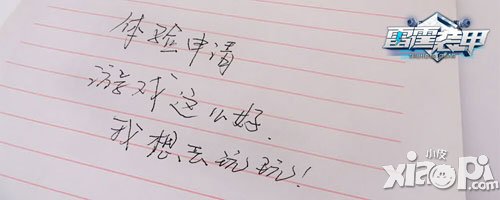 体验申请
游戏这么好.
我想去玩玩!
雷霆装甲
小皮
xiaopi.com